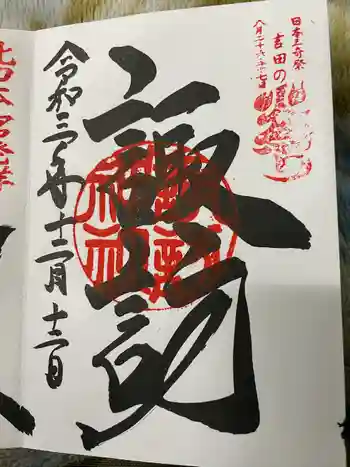 日本三奇祭
吉田の火祭
八月二十六・二十七日
諏訪
令和三年十二月十二日